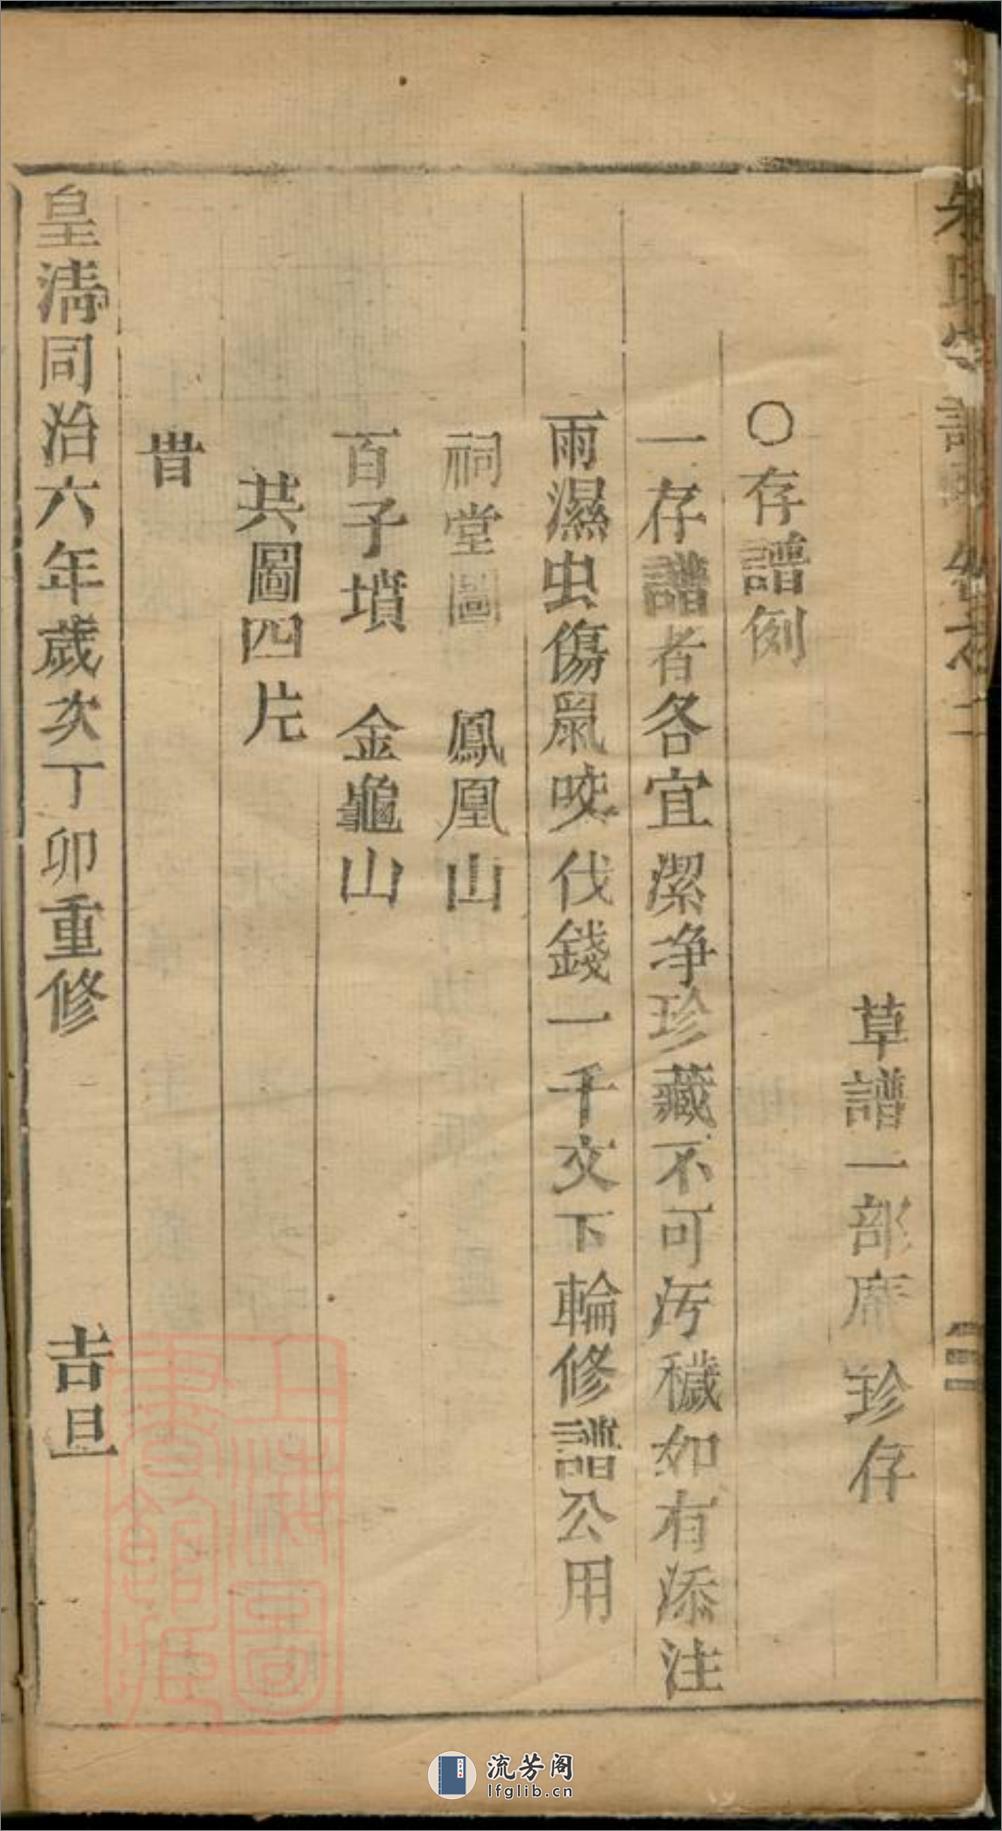 草譜一部 珍存
〇存譜例
一存譜者各宜潔净珍藏不可污穢如有添注
雨濕虫傷鼠咬伐錢一千交下輪修譜公用
祠堂圖 鳳凰山
百子墳 金龜山
共圖四片
旹
皇清同治六年歲次丁卯重修 吉旦
上海圖書館藏
流芳阁
lfglib.cn